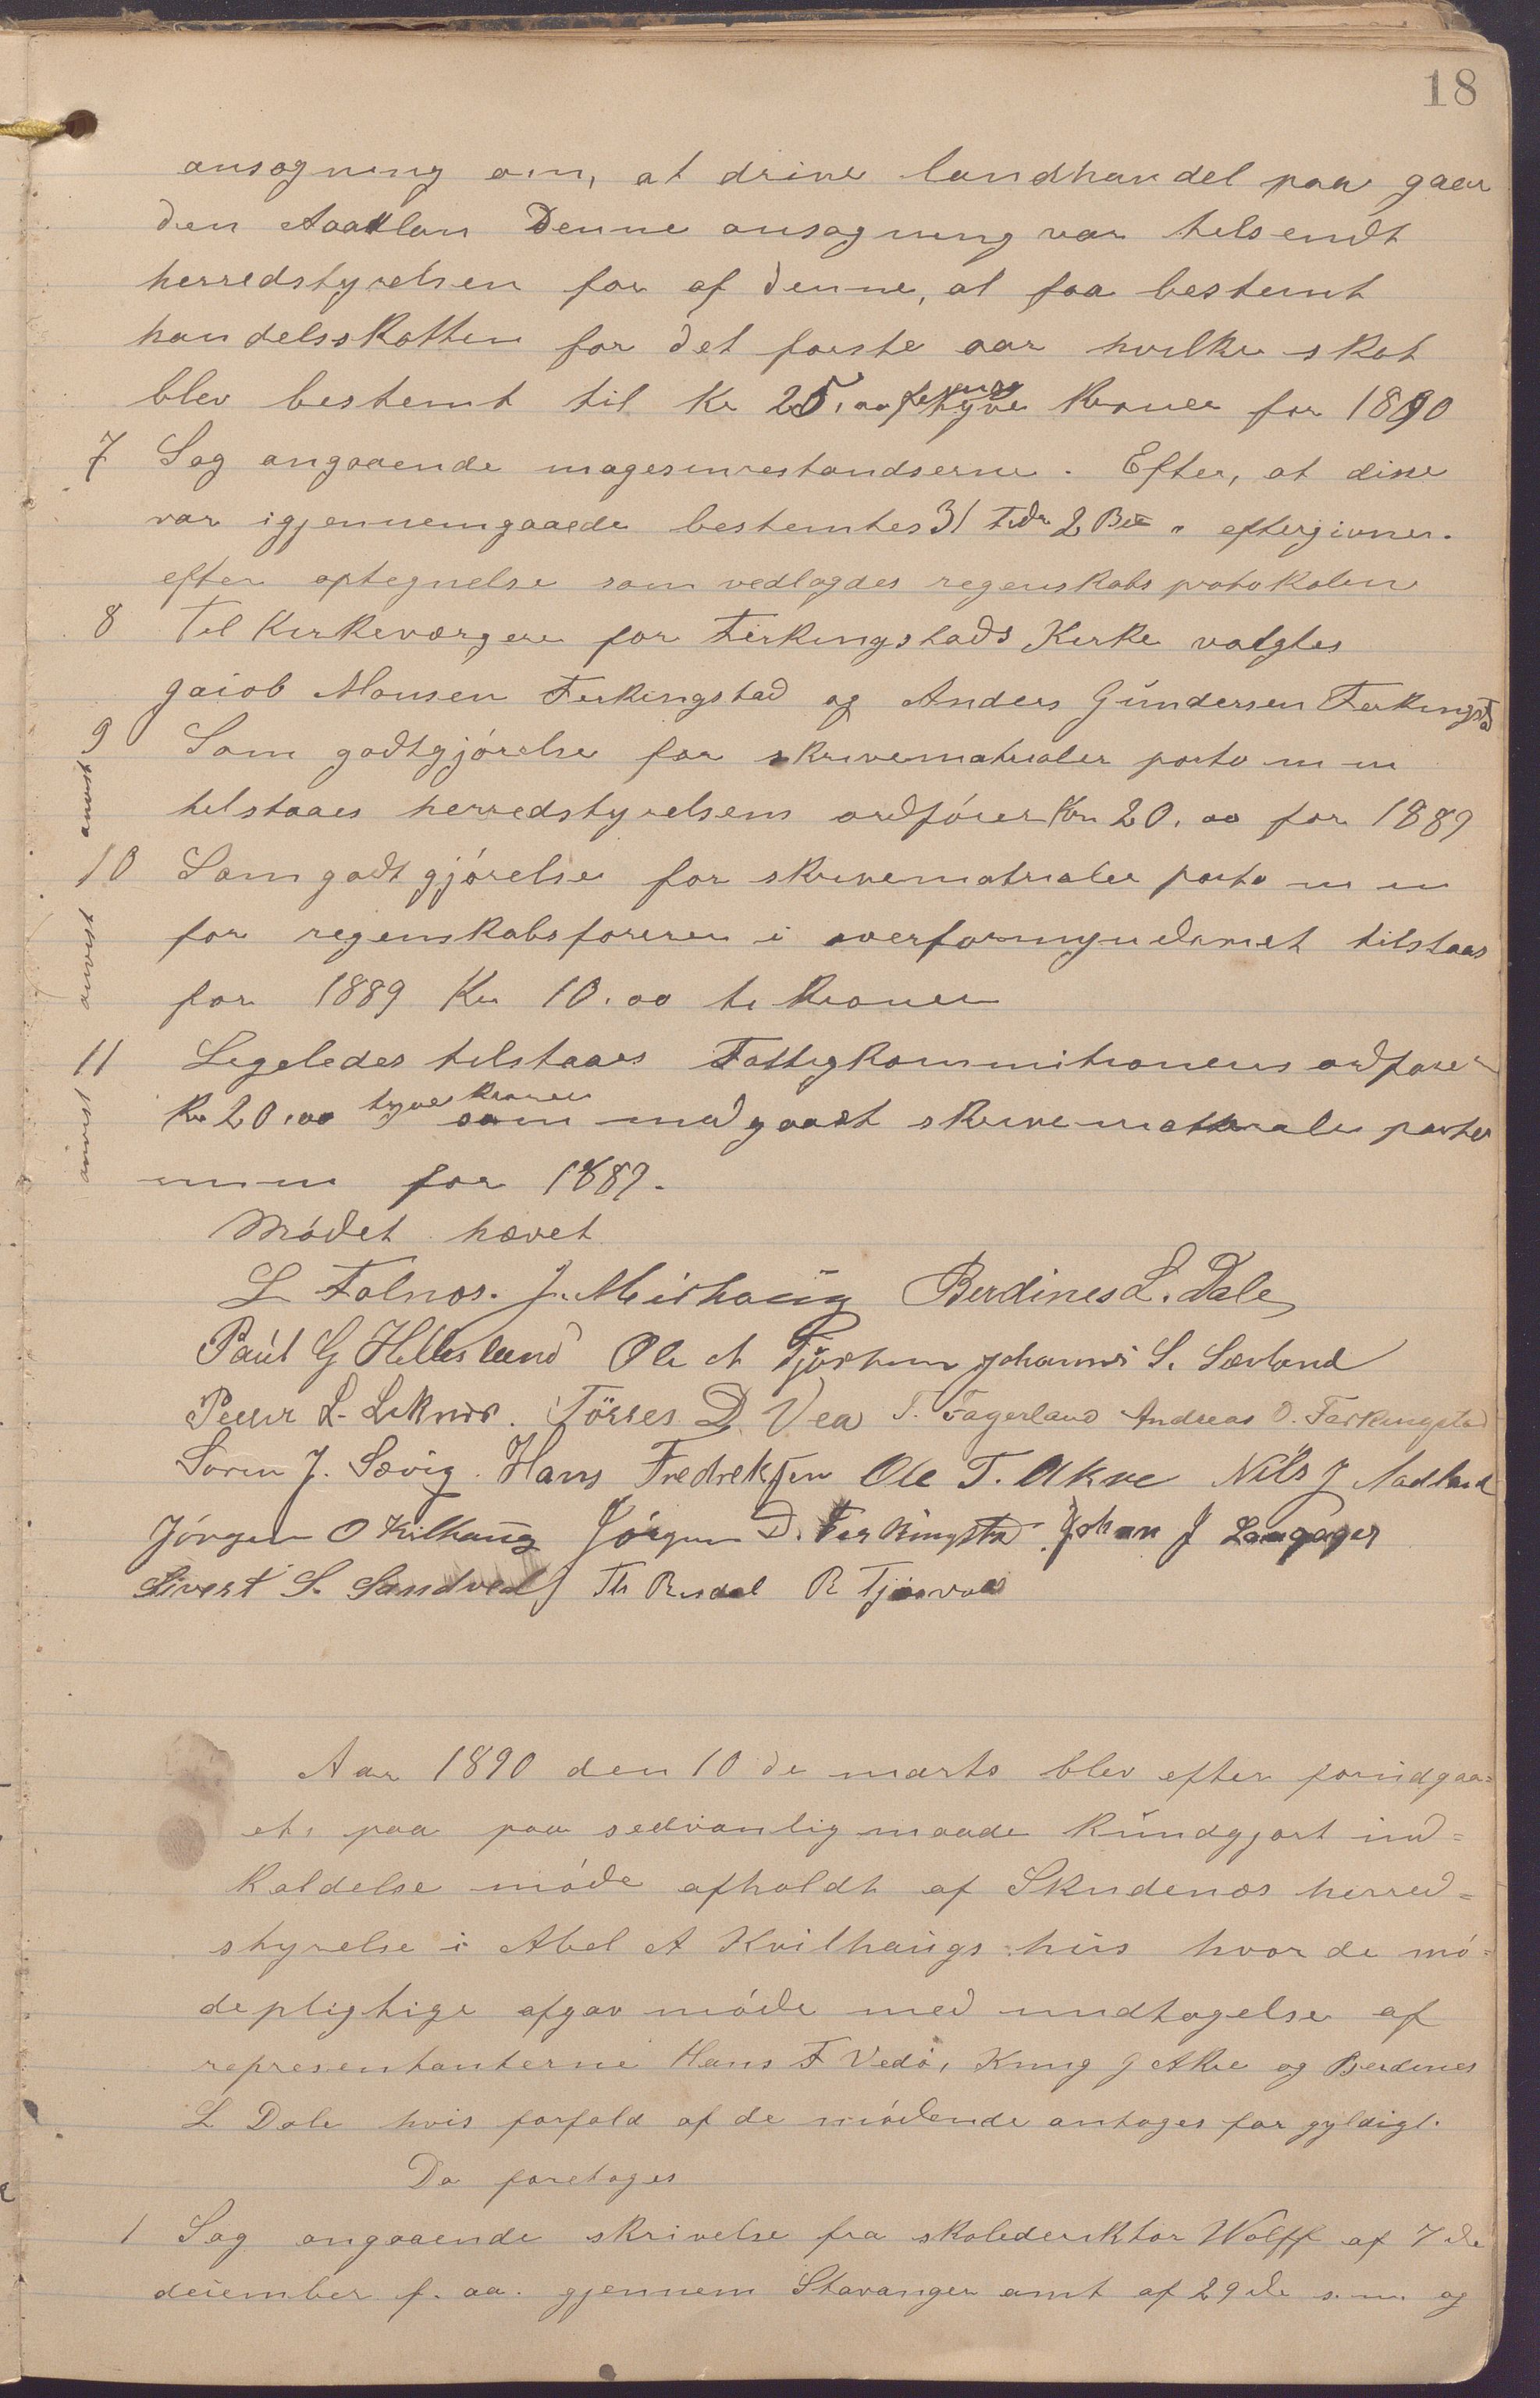 18
ansøgning om, at drive landhandel paa gaar
den Aadlan Denne ansøgning var tilsendt
herredstyrelsen for af denne, at faa bestemt
handelsskatten for det første aar hvilke skat
blev bestemt til Kr 25,00 fem og tyve Kroner for 1890
7 Sag angaaende magesinrestandserne. Efter, at disse
var igjennemgaaede bestemtes 31 Tdr 2 eftergivne.
efter optegnelse som vedlagdes regenskabs protokolen
8 Til Kirkeværgere for Ferkingstads Kirke valgtes
Jaiob Monsen Ferkingstad og Anders Gundersen Ferkingstd
9 Som godtgjørelse for skrivematrialer porto m m
anvist
tilstaaes herredstyrelsens ordfører Kr 20.00 for 1889
10 Som godtgjørelse for skrivematrialer porto m m
for regenskabsføreren i overformynderiet tilstaas
anvist
for 1889 Kr 10.00 ti Kroner
11 Ligeledes tilstaaes Fattigkommitionens ordfører
Kr 20.00 tyve Kroner som medgaaet skrivemattriale porto
anvist
m m for 1889.
Mødet hævet
L Falnæs. J. Midhaug Berdines L. Dale
Paul G Hillesland Ole A Tjøstem Johannes S. Sævland
Peder L. Liknæs. Tørres D Vea T. Fagerland Andreas O. Ferkingstad
Søren J. Sævig. Hans Fredreksen Ole T. Akre Nils J Aadland
Jørgen O Kvilhaug Jørgen D. Ferkingstd Johan J Langager
Sivert S. Sandved Th Risdal R Tjøsvold
Aar 1890 den 10de marts blev efter forindgaa=
et, paa paa sedvanlig maade kundgjort ind=
kaldelse møde afholdt af Skudenæs herred=
styrelse i Abel A Kvilhaugs hus hvor de mø=
depligtige afgav møde med undtagelse af
representanterne Hans F Vedø, Knug J Akre og Berdines
L Dale hvis forfald af de mødende antoges for gyldigt.
Da foretoges
1 Sag angaaende skrivelse fra skolederiktør Wolff af 7de
deiember f. aa. gjennem Stavanger amt af 29de s.m. og